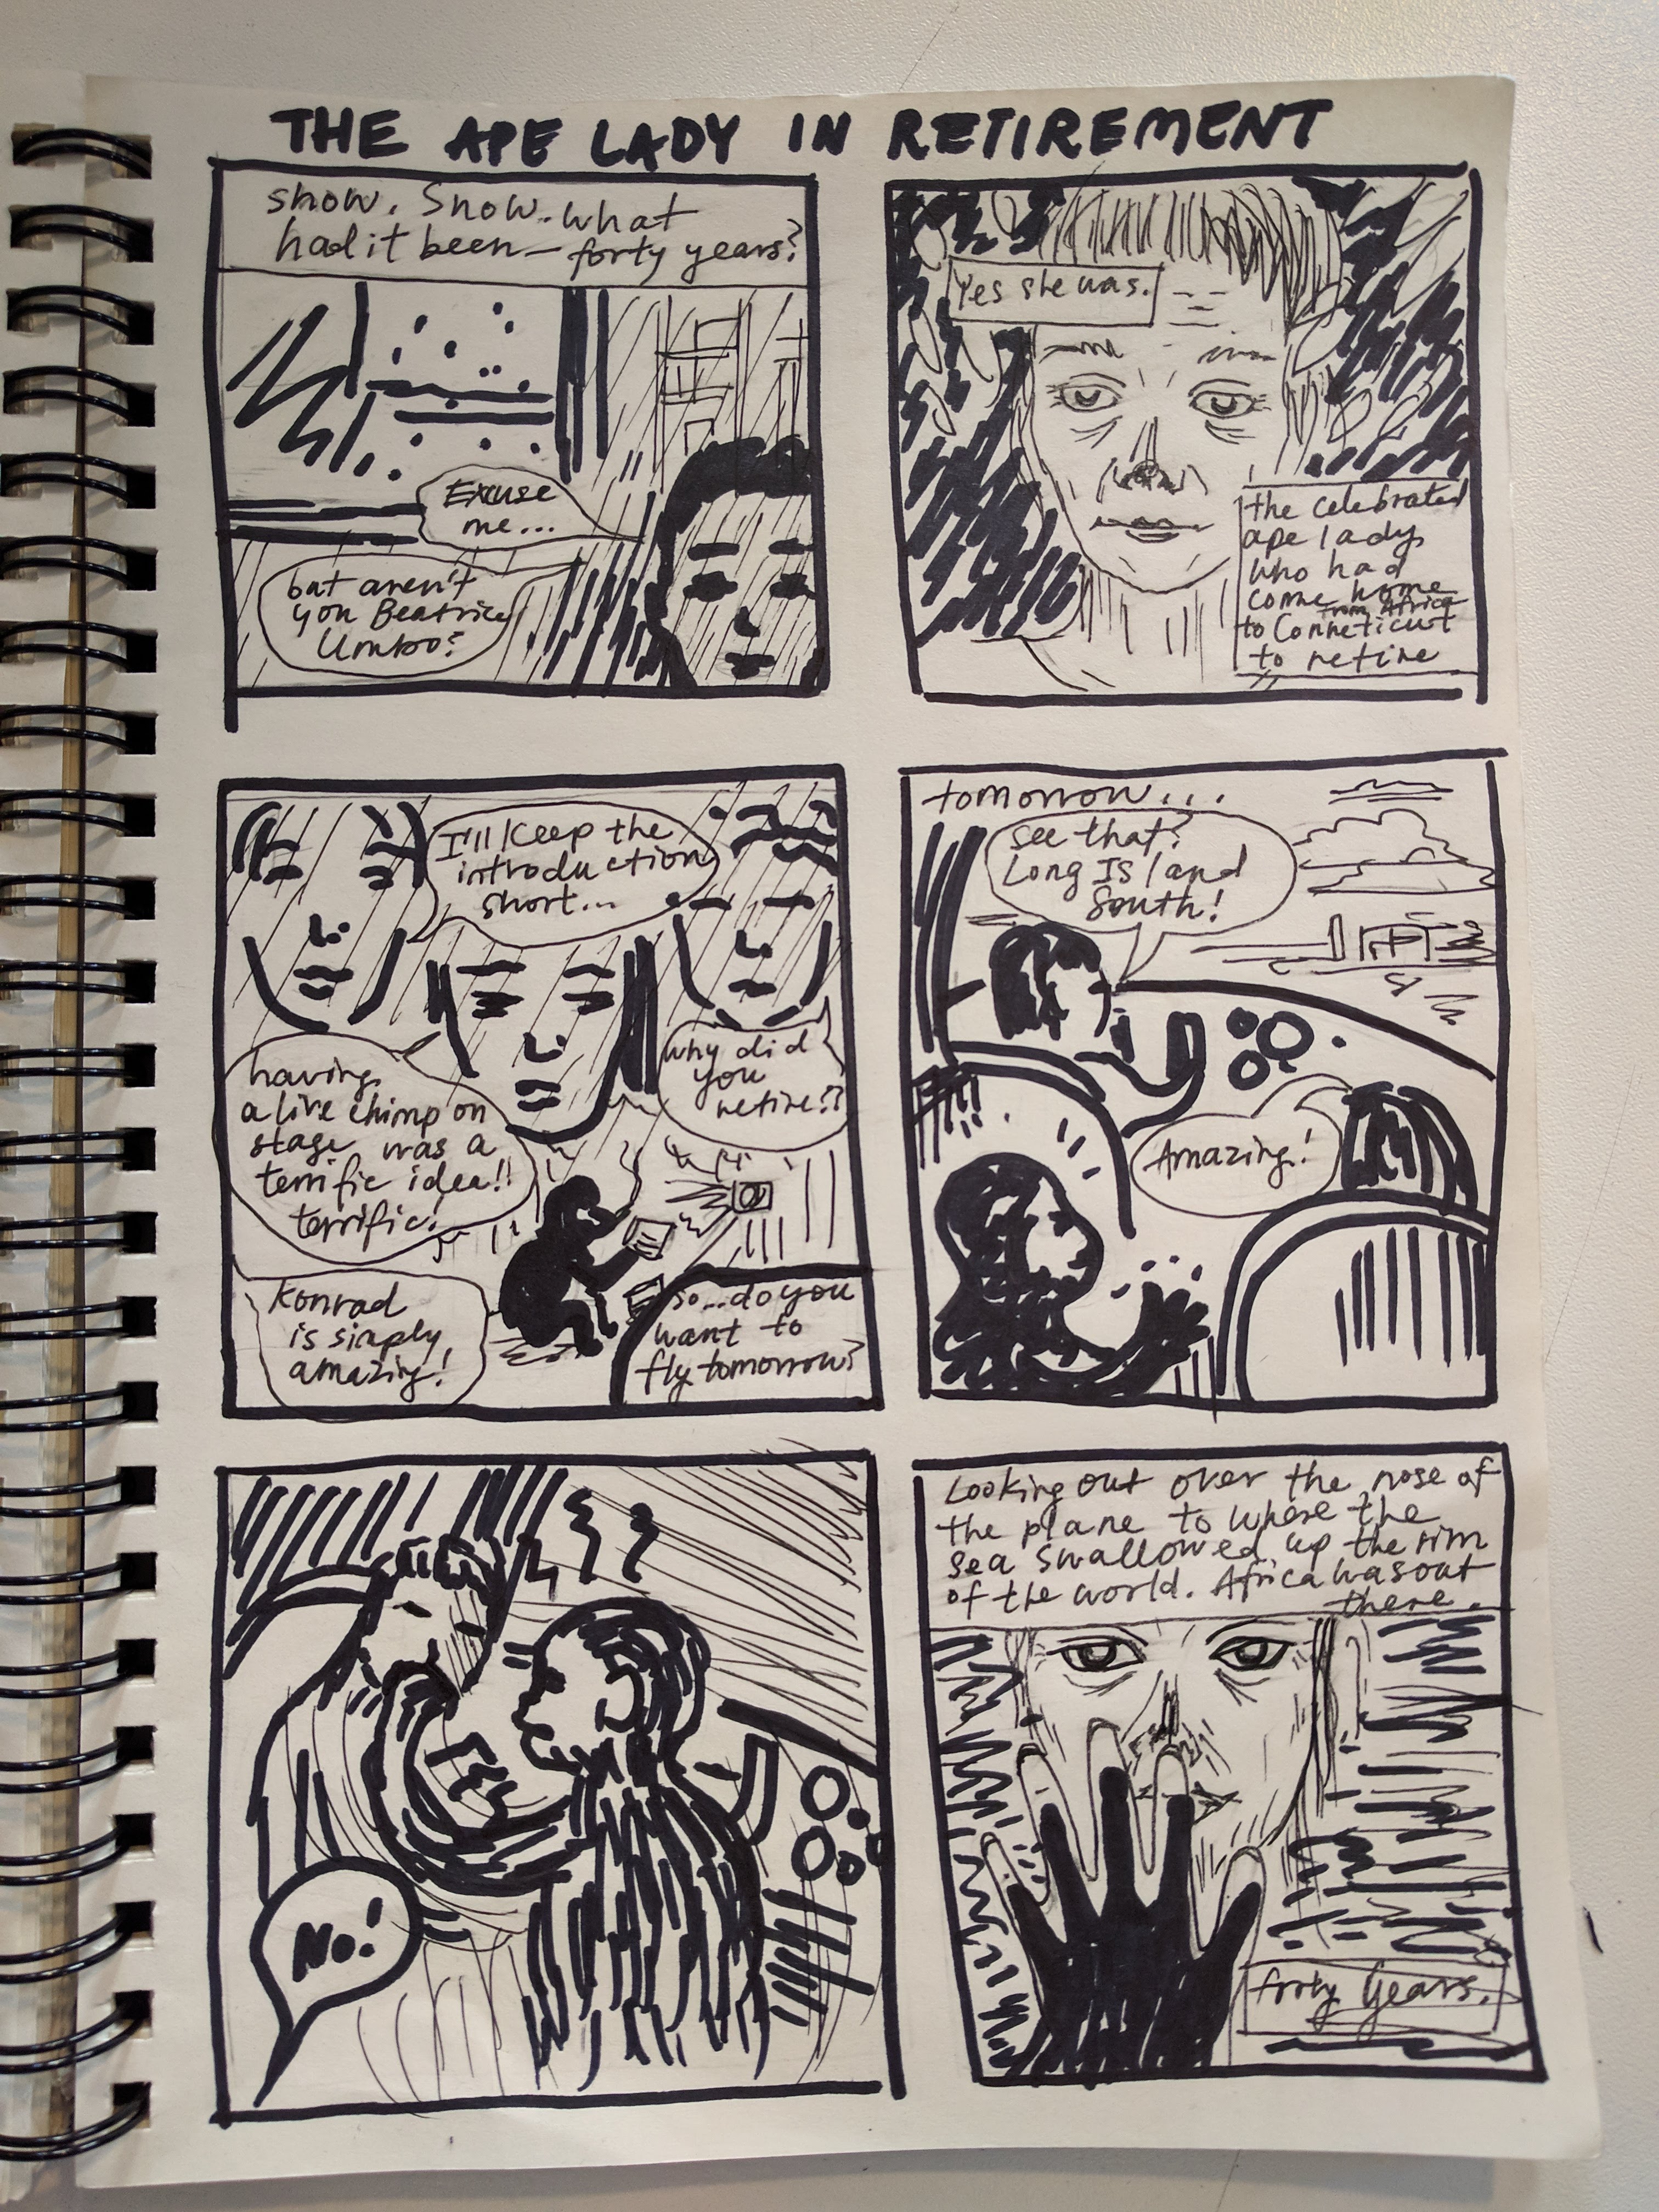 THE APE LADY IN RETIREMENT
snow. Snow. what
had it been — forty years?
Excuse
me...
but aren't
you Beatrice
Umbo?
Yes she was.
the celebrated
ape lady
who had
come home
from Africa
to Conneticut
to retire
I'll keep the
introduction
short...
having
a live chimp on
stage was a
terrific idea!!
terrific!
why did
you
retire!?
Konrad
is simply
amazing!
so...do you
want to
fly tomorrow?
tomorrow...
see that?
Long Island
South!
Amazing!
No!
Looking out over the nose of
the plane to where the
sea swallowed up the rim
of the world. Africa was out
there.
forty years.